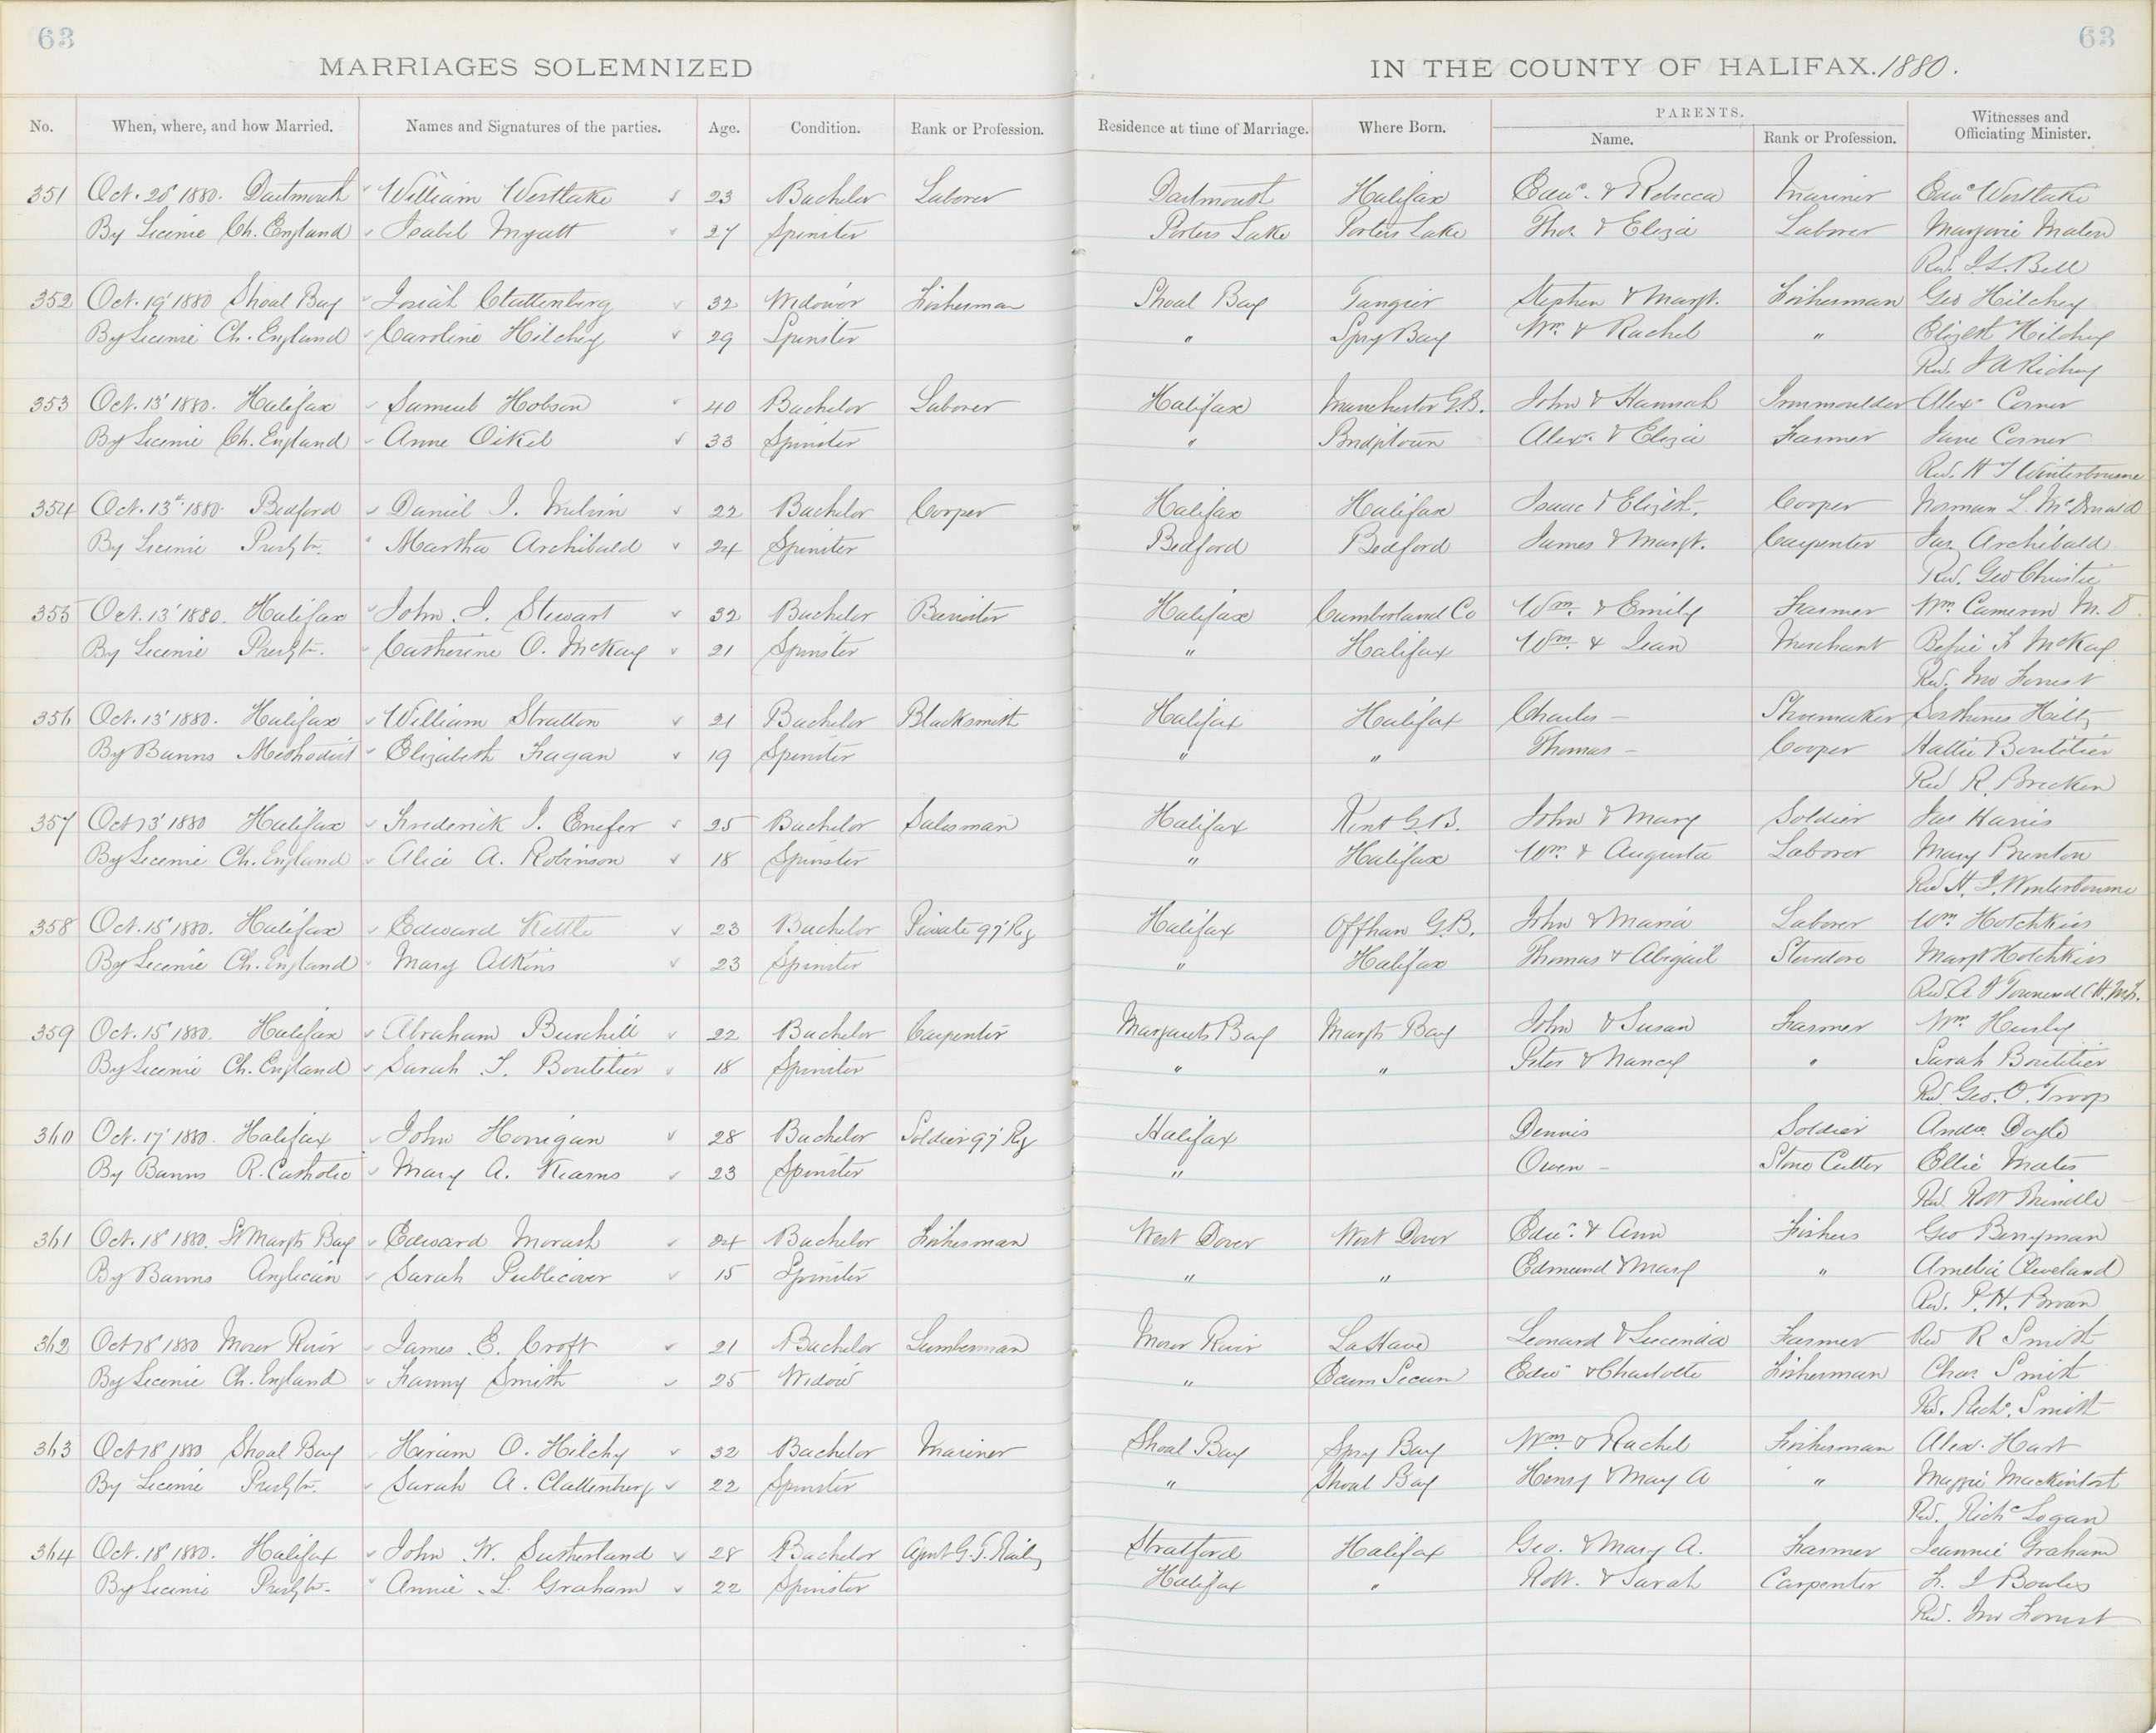 63
63
MARRIAGES SOLEMNIZED
IN THE COUNTY OF HALIFAX. 1880.
No. When, where, and how Married. Names and Signatures of the parties. Age. Condition. Rank or Profession. Residence at time of Marriage. Where Born. PARENTS. Name. Rank or Profession. Witnesses and Officiating Minister.
351 Oct. 20' 1880. Dartmouth William Westlake 23 Bachelor Laborer Dartmouth Halifax Edwd. & Rebecca Mariner Edwd Westlake
By License Ch. England Isabel Myatt 27 Spinster Porters Lake Porters Lake Thos. & Eliza Laborer Marjorie
Rev. J. L. Bell
352 Oct. 19' 1880 Shoal Bay Josiah Clattenburg 32 Widower Fisherman Shoal Bay Tangier Stephen & Margt. Fisherman Geo Hilchey
By License Ch. England Caroline Hilchey 29 Spinster " Spry Bay Wm. & Rachel " Elizth Hilchey
Rev. J A Richey
353 Oct. 13' 1880. Halifax Samuel Hobson 40 Bachelor Laborer Halifax Manchester G.B. John & Hannah Ironmoulder Alexr Corner
By License Ch. England Anne Oikel 33 Spinster " Bridgetown Alexr. & Eliza Farmer Jane Corner
Rev. H J Winterbourne
354 Oct. 13th 1880. Bedford Daniel I. Melvin 22 Bachelor Cooper Halifax Halifax Isaac & Elizth. Cooper Norman L. McDonald
By License Presbtn. Martha Archibald 24 Spinster Bedford Bedford James & Margt. Carpenter Jas. Archibald
Rev. Geo Christie
355 Oct. 13' 1880. Halifax John J. Stewart 32 Bachelor Barrister Halifax Cumberland Co Wm. & Emily Farmer Wm. Cameron M. D.
By License Presbtn. Catherine O. McKay 21 Spinster " Halifax Wm. & Jean Merchant Bessie F McKay
Rev. Jno Forrest
356 Oct. 13' 1880. Halifax William Stratton 21 Bachelor Blacksmith Halifax Halifax Charles – Shoemaker Hiltz
By Banns Methodist Elizabeth Fagan 19 Spinster " " Thomas – Cooper Hattie Boutilier
Rev R. Brecken
357 Oct 13' 1880 Halifax Frederick J. Enefer 25 Bachelor Salesman Halifax Kent G.B. John & Mary Soldier Jas Harris
By License Ch. England Alice A. Robinson 18 Spinster " Halifax Wm. & Augusta Laborer Mary Brunton
Rev H. J. Winterbourne
358 Oct. 15' 1880. Halifax Edward Kettle 23 Bachelor Private 97' Rg Halifax Offham G.B. John & Maria Laborer Wm Hotchkiss
By License Ch. England Mary Atkins 23 Spinster " Halifax Thomas & Abigail Stevedore Margt Hotchkiss
Rev. A J Townend
359 Oct. 15' 1880. Halifax Abraham Burchill 22 Bachelor Carpenter Margarets Bay Margts Bay John & Susan Farmer Wm.
By License Ch. England Sarah J. Boutilier 18 Spinster " " Peter & Nancy " Sarah Boutilier
Rev. Geo. O. Troop
360 Oct. 17' 1880. Halifax John Horrigan 28 Bachelor Soldier 97' Rg Halifax Dennis Soldier Andw. Doyle
By Banns R. Catholic Mary A. Kearns 23 Spinster " Owen – Stone Cutter Ellie
Rev. Robt
361 Oct. 18' 1880. St Margts Bay Edward Morash 24 Bachelor Fisherman West Dover West Dover Edwd. & Ann Fishers Geo Berryman
By Banns Anglican Sarah Publicover 15 Spinster " " Edmund & Mary " Amelia Cleveland
Rev. P. H. Brown
362 Oct 18' 1880 Moser River James E. Croft 21 Bachelor Lumberman Moser River LaHave Leonard & Lucinda Farmer Rev R Smith
By License Ch. England Fanny Smith 25 Widow " Ecum Secum Edwd & Charlotte Fisherman Chas Smith
Rev. Richd. Smith
363 Oct 18' 1880 Shoal Bay Hiram O. Hilchy 32 Bachelor Mariner Shoal Bay Spry Bay Wm & Rachel Fisherman Alex. Hart
By License Presbtn. Sarah A. Clattenburg 22 Spinster " Shoal Bay Henry & Mary A " Maggie Mackintosh
Rev. Richd Logan
364 Oct. 18' 1880. Halifax John W. Sutherland 28 Bachelor Agent G. T. Railwy Stratford Halifax Geo. & Mary A. Farmer Jeannie Graham
By License Presbtn. Annie L. Graham 22 Spinster Halifax " Robt. & Sarah Carpenter F. J Bowles
Rev. Jno Forrest